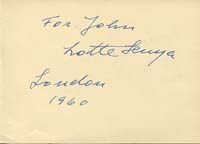 For John
Lotte Lenya
London
1960